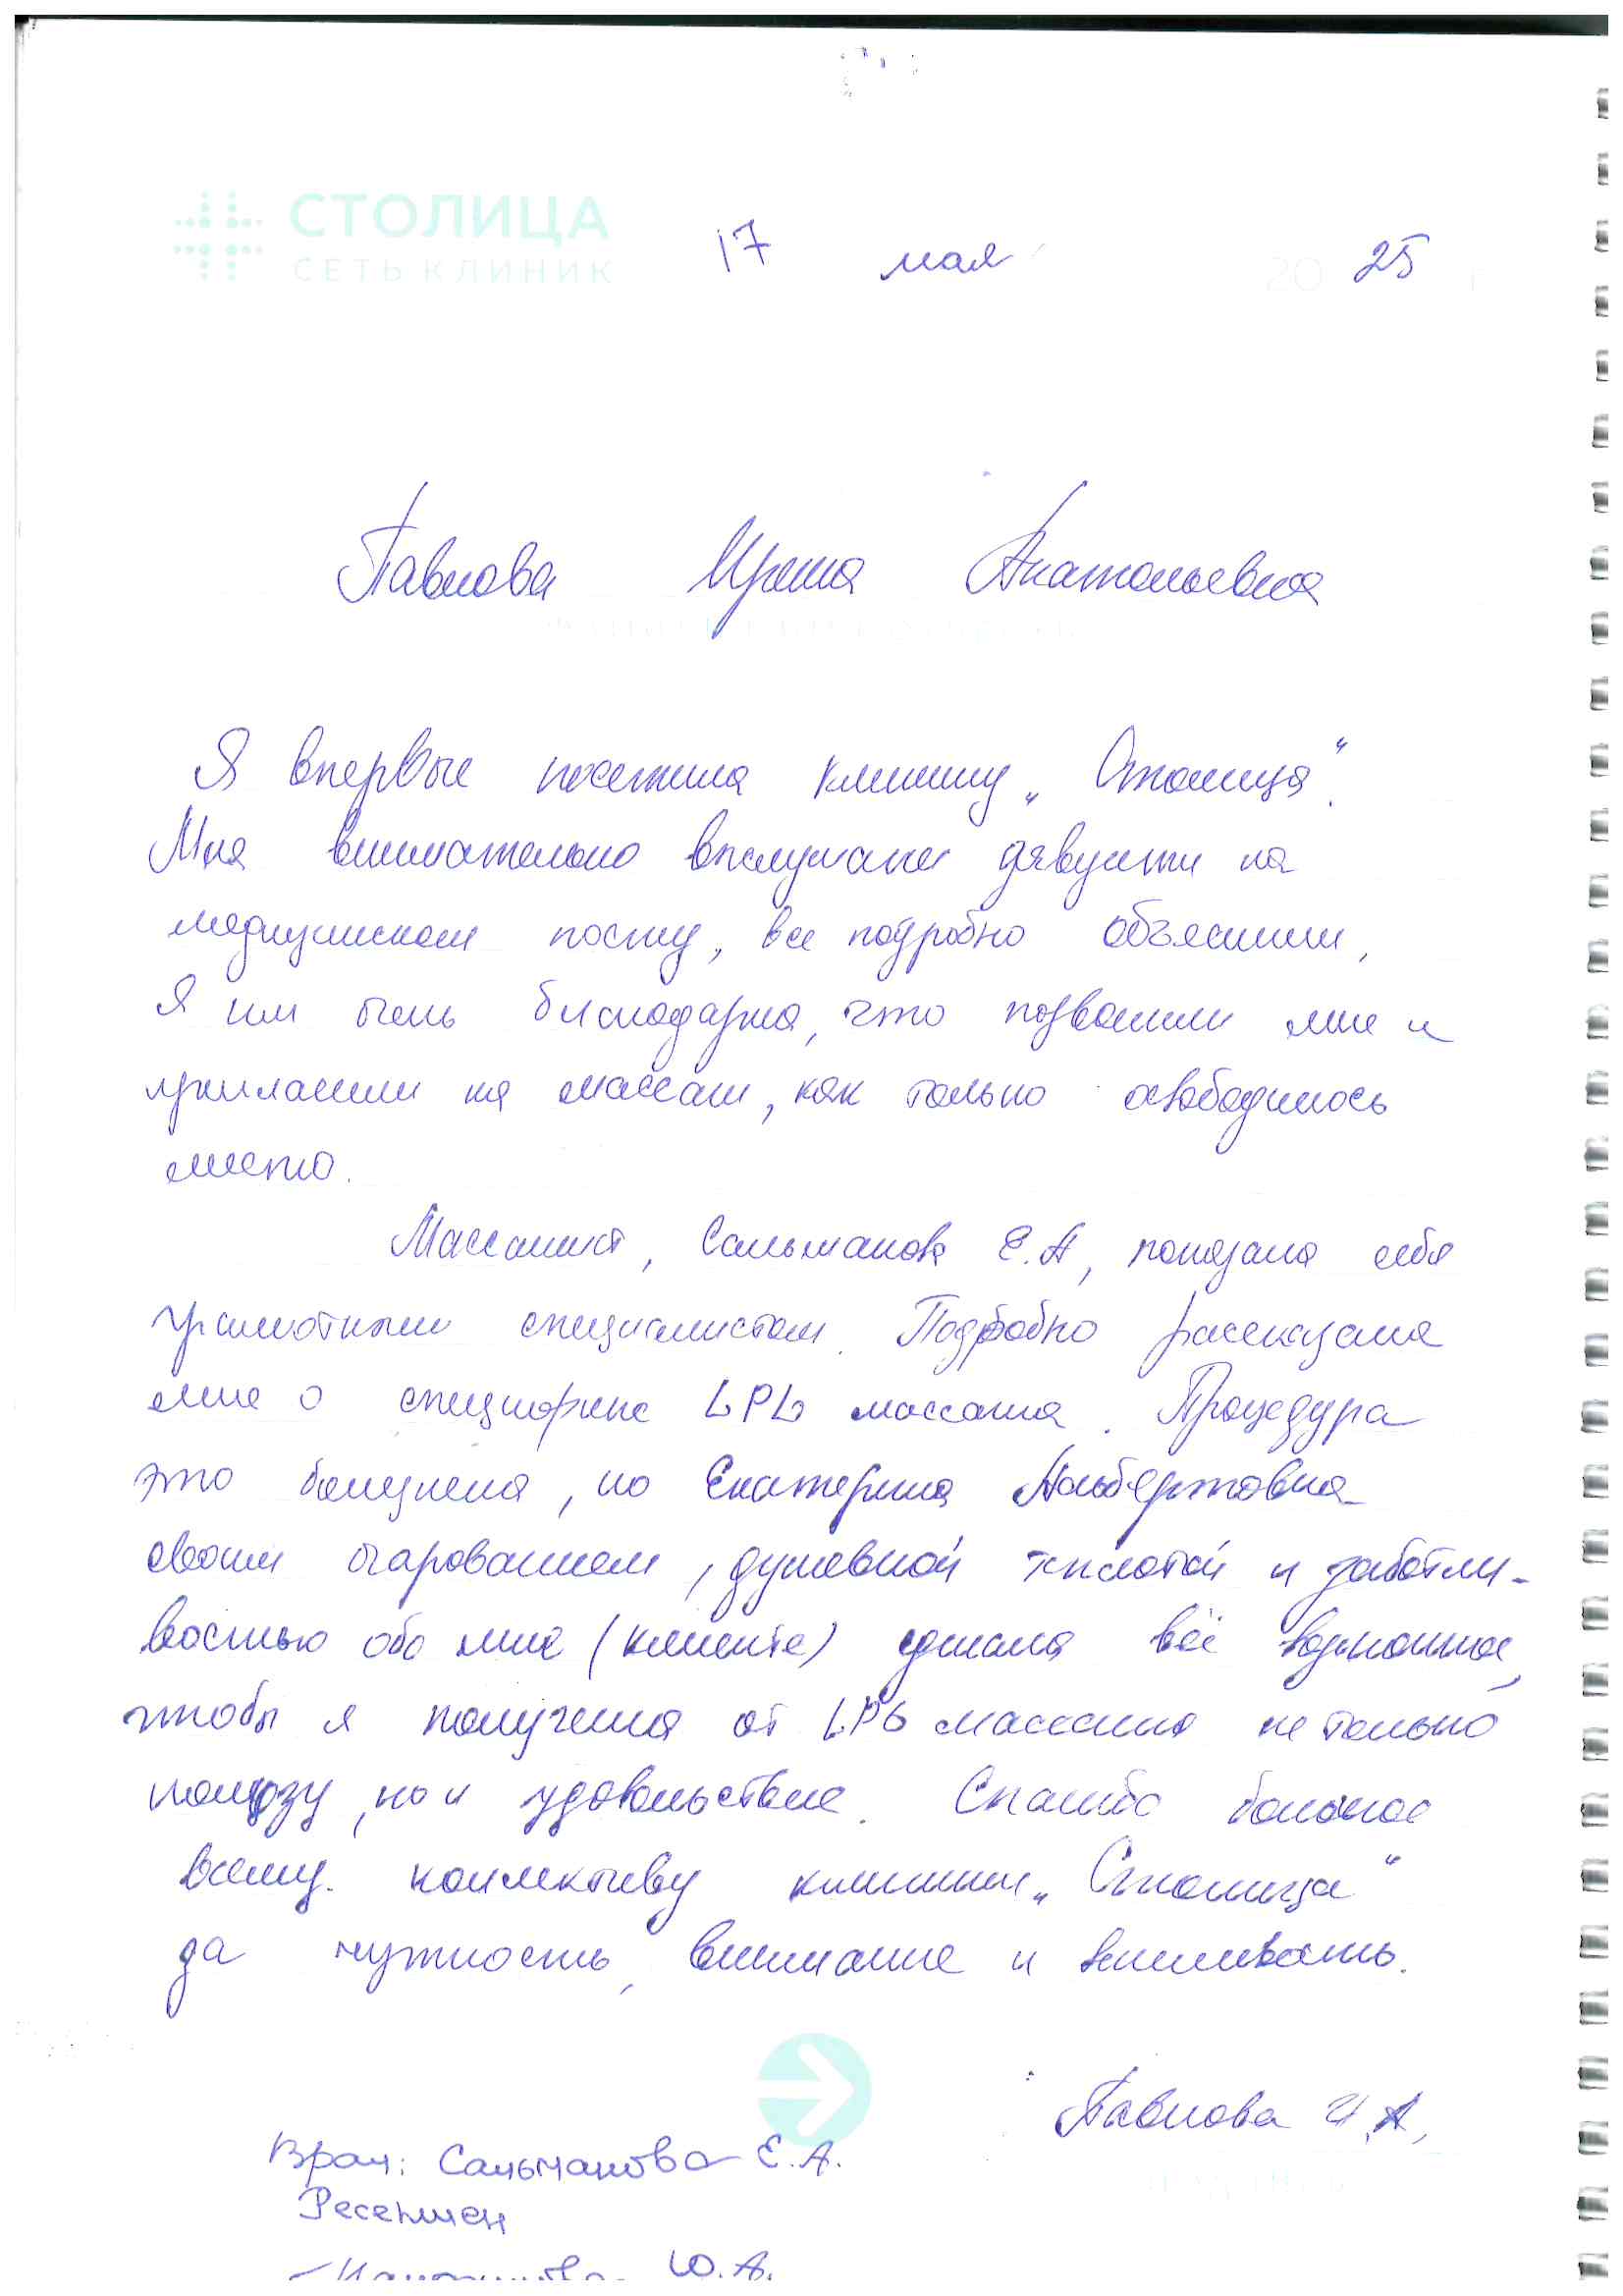 СТОЛИЦА
СЕТЬ КЛИНИК
17 мая 2025
Павлова Ирина Анатольевна
Я впервые посетила клинику „Столица“.
Мня внимательно выслушали дявушки на
медицинском посту, все подробно объяснили,
Я им очень благодарна, что позвонили мне и
пригласили на массаж, как только освободилось
место.
Массажист, Сальманова Е.А, показала себя
грамотным специалистом. Подробно рассказала
мне о специфике LPG массажа. Процедура
это болезнена, но Екатерина Альбертовна
своим очарованием, душевной теплотой и заботли-
востью обо мне (клиенте) сделала всё возможное,
чтобы я получила от LPG массажа не только
пользу, но и удовольствие. Спасибо большое
всему коллективу клиники „Столица“
за чуткость, внимание и вежливость.
Павлова И.А,
Врач: Сальманова Е.А.
Ресепшен
Ю.А.